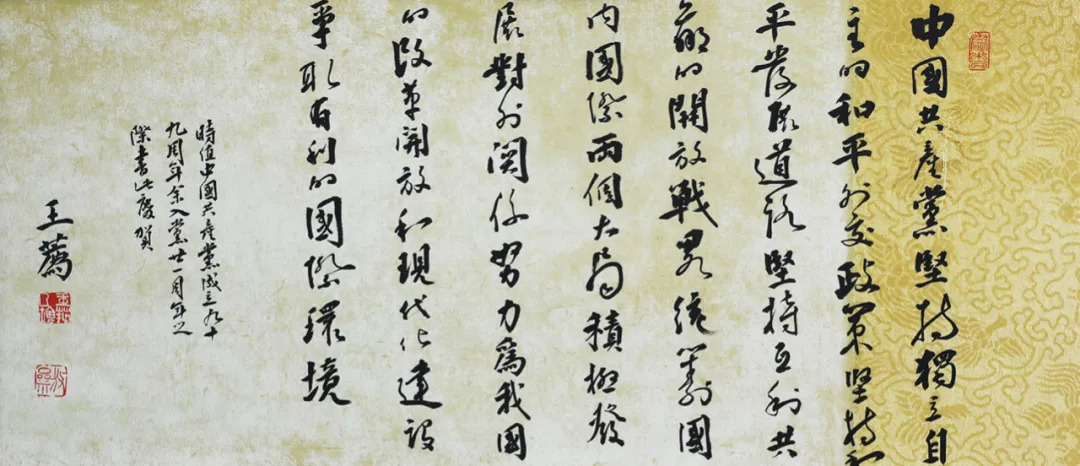 中國共產黨堅持獨立自
主的和平外交政策坚持和
平發展道路堅持互利共
贏的開放戰略統籌國
內國際兩個大局積極發
展對外關係努力為我國
的改革開放和現代化建設
爭取有利的國際環境
時值中國共產黨成立九十
九周年余入黨廿一周年之
際書此慶賀
王薦